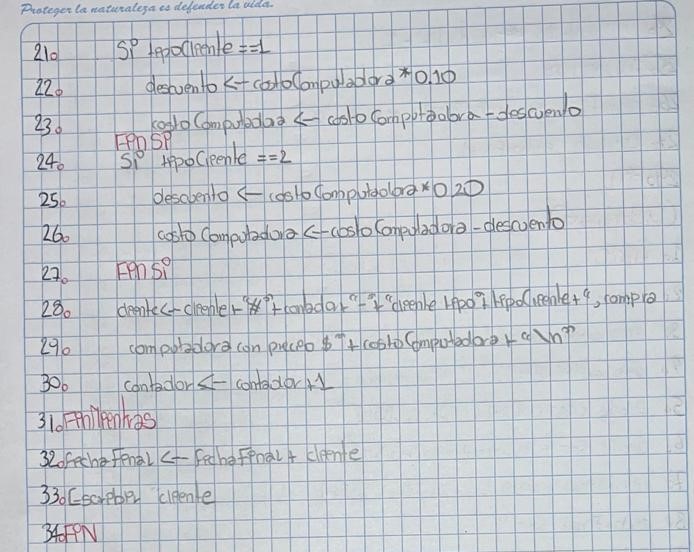 Proteger la naturaleza es defender la vida.
21. Si tipoCliente ==1
22. descuento <- costoComputadora * 0.10
23. costoComputadora <- costoComputadora - descuento
FinSi
24. Si tipoCliente ==2
25. descuento <- costoComputadora * 0.20
26. costoComputadora <- costoComputadora - descuento
27. FinSi
28. cliente <- cliente + "#" + contador + "-" + "cliente tipo" + tipoCliente + ", compra
29. computadora con precio $" + costoComputadora + "\n"
30. contador <- contador + 1
31. FinMientras
32. fechaFinal <- fechaFinal + cliente
33. Escribir cliente
34. FIN